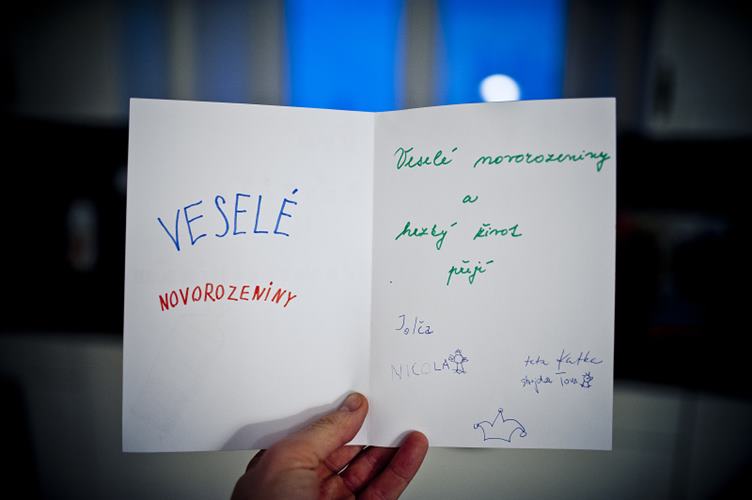 VESELÉ
NOVOROZENINY
Veselé novorozeniny
a
hezký život
přejí
Jolča
NICOLA
teta Katka
strejda Tom